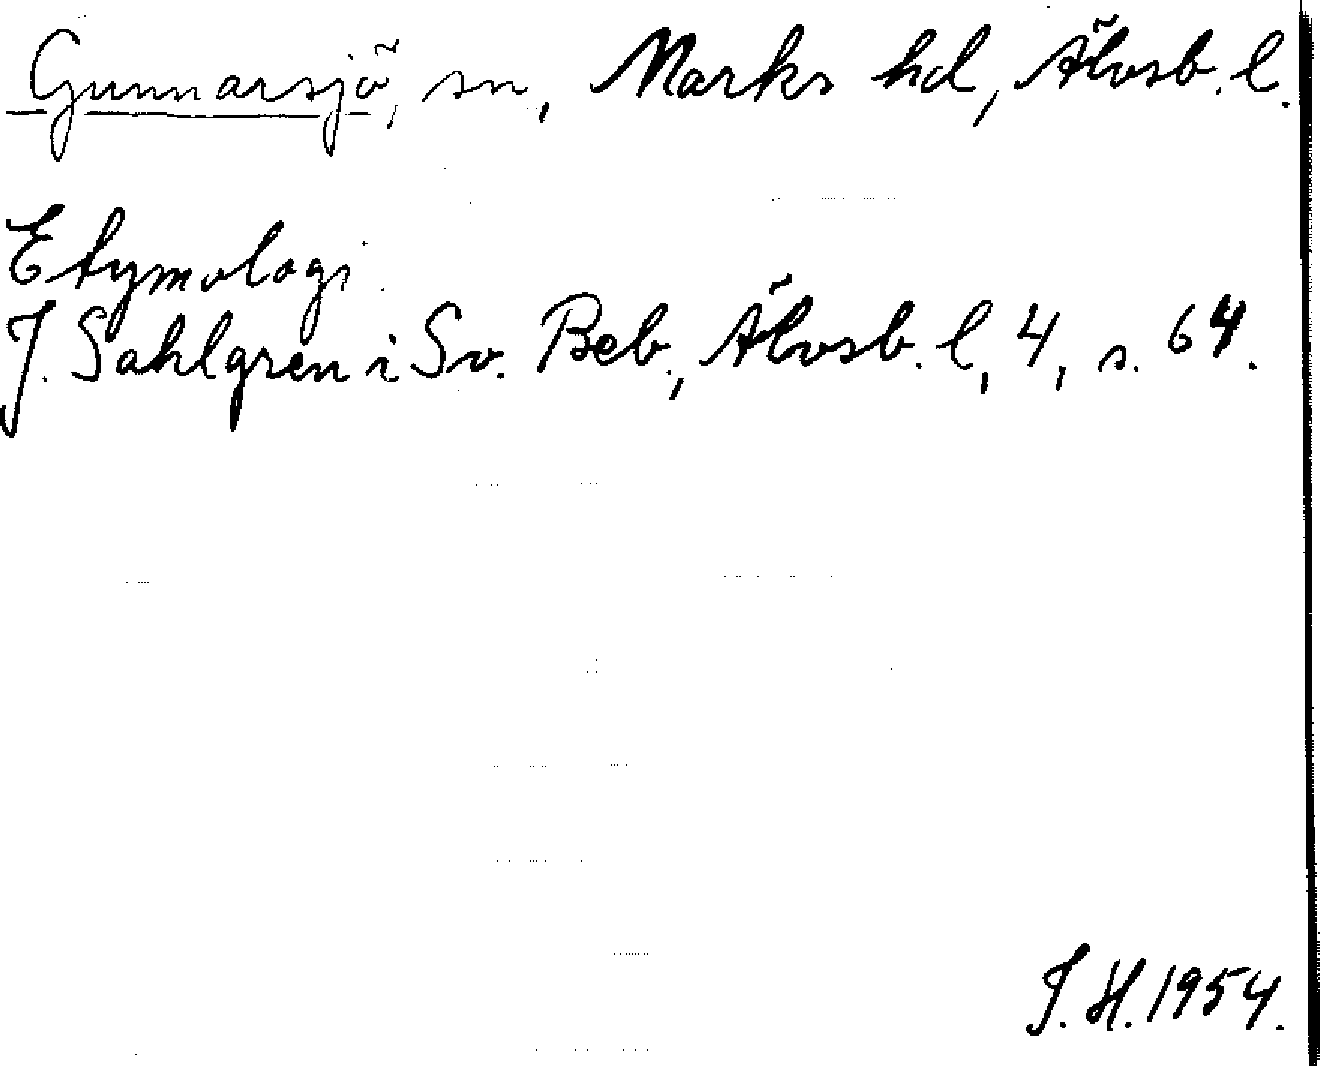 Gunnarsjö, sn, Marks hd, Älvsb. l.
Etymologi.
J. Sahlgren i Sv. Beb., Älvsb. l, 4, s. 64.
J. H. 1954.